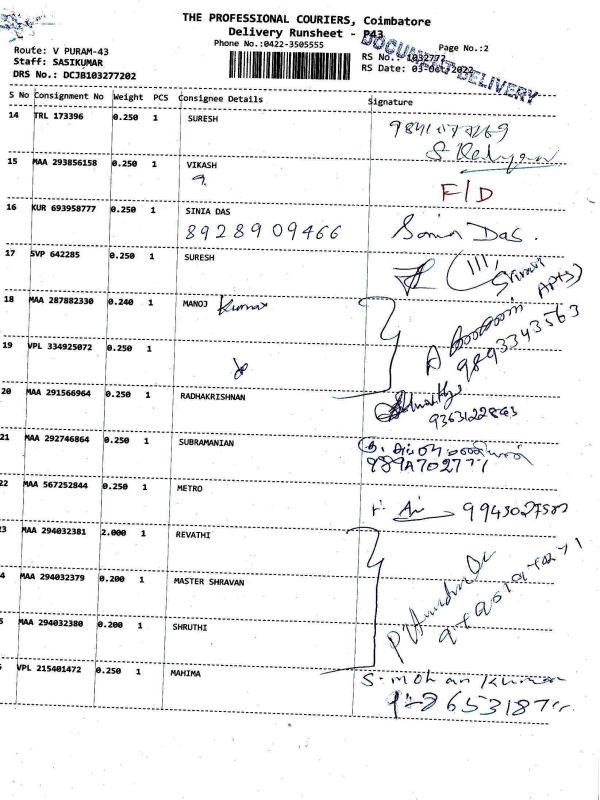 THE PROFESSIONAL COURIERS, Coimbatore
Delivery Runsheet - P43
Phone No.:0422-3505555
Page No.:2
DOCUMENT DELIVERY
Route: V PURAM-43
RS No.: 1032772
Staff: SASIKUMAR
RS Date: 03-Oct-2022
DRS No.: DCJB103277202
S No Consignment No Weight PCS Consignee Details Signature
14 TRL 173396 0.250 1 SURESH
15 MAA 293856158 0.250 1 VIKASH
F/D
16 KUR 693958777 0.250 1 SINIA DAS
8928909466 Sonia Das.
17 SVP 642285 0.250 1 SURESH
18 MAA 287882330 0.240 1 MANOJ Kumar
9893343563
19 VPL 334925072 0.250 1
20 MAA 291566964 0.250 1 RADHAKRISHNAN
21 MAA 292746864 0.250 1 SUBRAMANIAN
22 MAA 567252844 0.250 1 METRO
23 MAA 294032381 2.000 1 REVATHI
4 MAA 294032379 0.200 1 MASTER SHRAVAN
5 MAA 294032380 0.200 1 SHRUTHI
VPL 215401472 0.250 1 MAHIMA
S-mohan Kumar